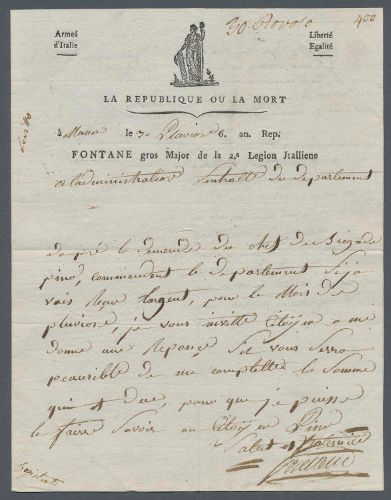 30 Piovoso 400
Armeé
d'Italie
Liberté
Egalité
LA REPUBLIQUE OU LA MORT
à le 30 Pluviose 6. an. Rep.
FONTANE gros Major de la 2.a Legion Jtalliene
a l'administration Centralle du departement
da pré la demende du chef de Brigade
pino, commendent le departement si je
vais Reçue l'argent, pour le Mois de
pluviose, je vous invitte Citoyen a me
donne une Reponse Sil vous Serra
peausible de me complettes la Somme
qui est due, pour que je puisse
le faire Savoir au Citoyen Pino
Salut et fraternité
Fontane